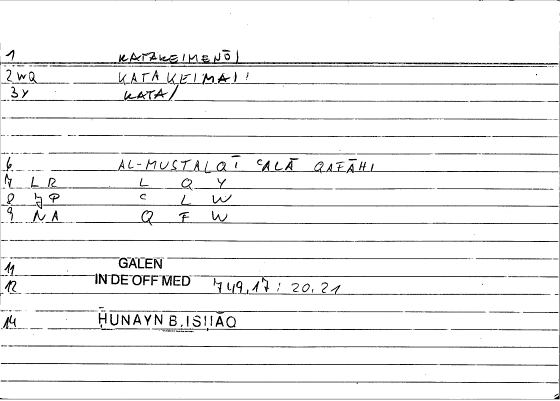 1 KATAKEIMENŌI
2 WQ KATAKEIMAI:
3 Y KATA/
6 AL-MUSTALQĪ ʿALĀ QAFĀHI
7 LR L Q Y
8 JP ʿ L W
9 NA Q F W
11 GALEN
12 IN DE OFF MED 749,17 : 20.21
14 ḤUNAYN B.ISḤĀQ